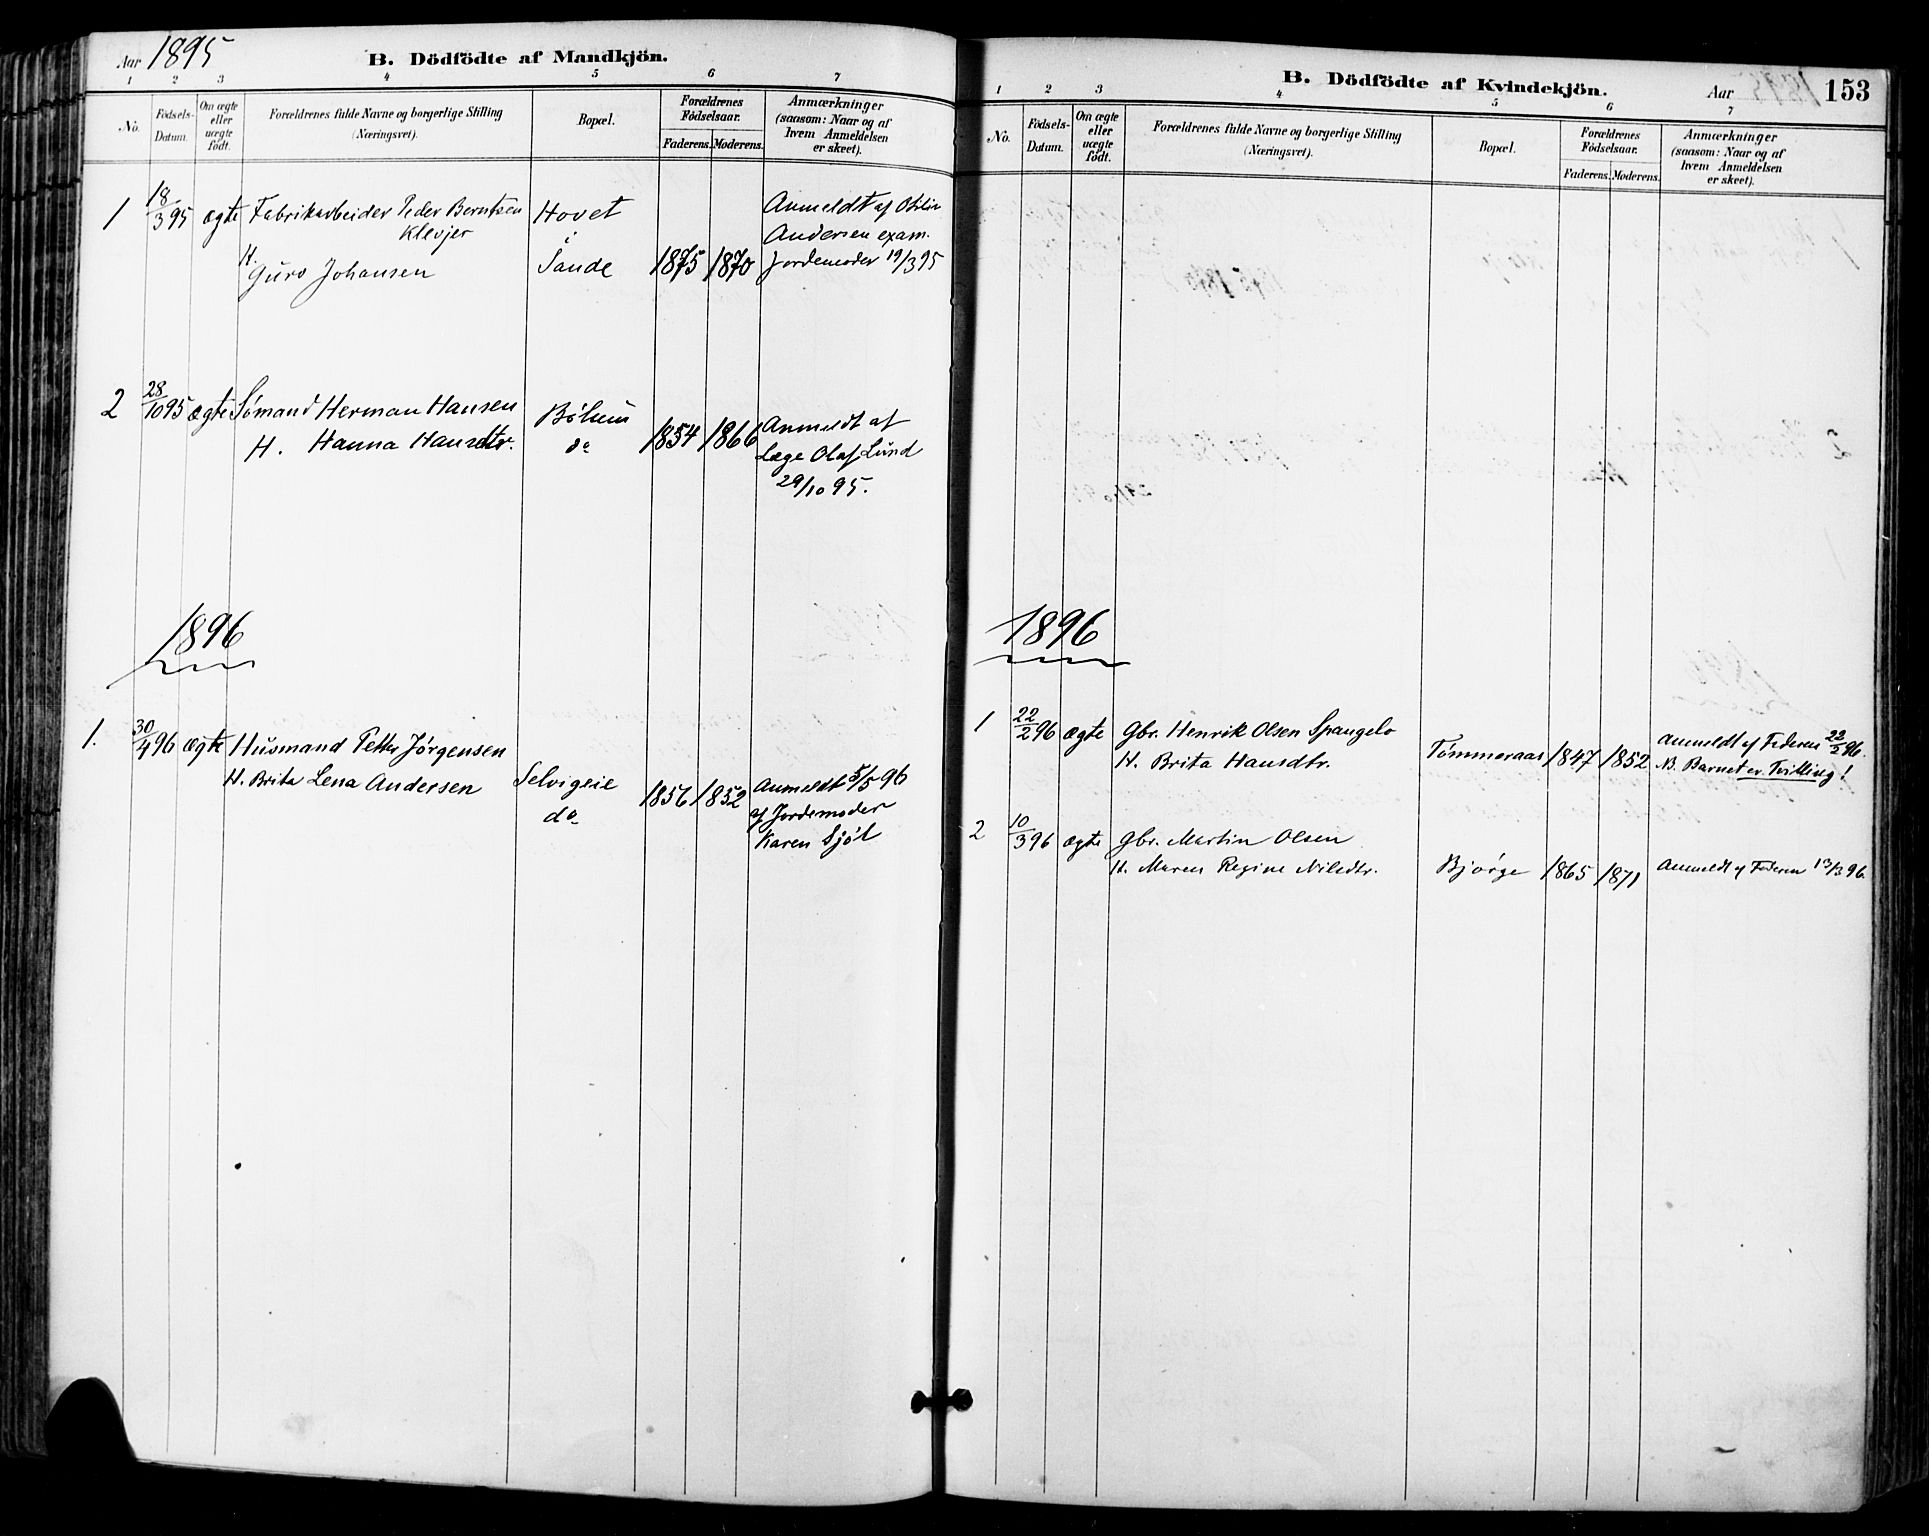 Aar 1895
B. Dödfödte af Mandkjön.
1 2 3 4 5 6 7
No.
Födsels-Datum.
Om ægte eller uægte født.
Forældrenes fulde Navne og borgerlige Stilling
(Næringsvei).
Bopæl.
Forældrenes Födselsaar.
Faderens. Moderens.
Anmærkninger
(saasom: Naar og af
hvem Anmeldelsen
er skeet).
1 18/3 95 ægte Fabrikarbeider Peder Berntsen
Klevjer
H. Guro Johansen
Hovet
i
Sande
1875 1870
Anmeldt af
Andersen exam.
Jordemoder 19/3 95
2 28/10 95 ægte Sømand Herman Hansen
H. Hanna Hansdtr.
do
1854 1866
Anmeldt af
Læge Olaf Lund
29/10 95.
1896
1. 30/4 96 ægte Husmand Petter Jørgensen
H. Brita Lena Andersen
Selvigeie
do
1856 1852
Anmeldt 5/5 96
af Jordemoder
Karen Sjøl
B. Dödfödte af Kvindekjön.
Aar 1895
153
1 2 3 4 5 6 7
No.
Födsels-Datum.
Om ægte eller uægte født.
Forældrenes fulde Navne og borgerlige Stilling
(Næringsvei).
Bopæl.
Forældrenes Födselsaar.
Faderens. Moderens.
Anmærkninger
(saasom: Naar og af
hvem Anmeldelsen
er skeet).
1896
1 22/2 96 ægte Gbr. Henrik Olsen Spangelo
H. Brita Hansdtr.
Tømmeraas 1847 1852
Anmeldt af Faderen 22/2 96.
N. Barnet er Tvilling!
2 10/3 96 ægte Gbr. Martin Olsen
H. Maren Regine Nilsdtr.
Bjørge 1865 1871
Anmeldt af Faderen 13/3 96.